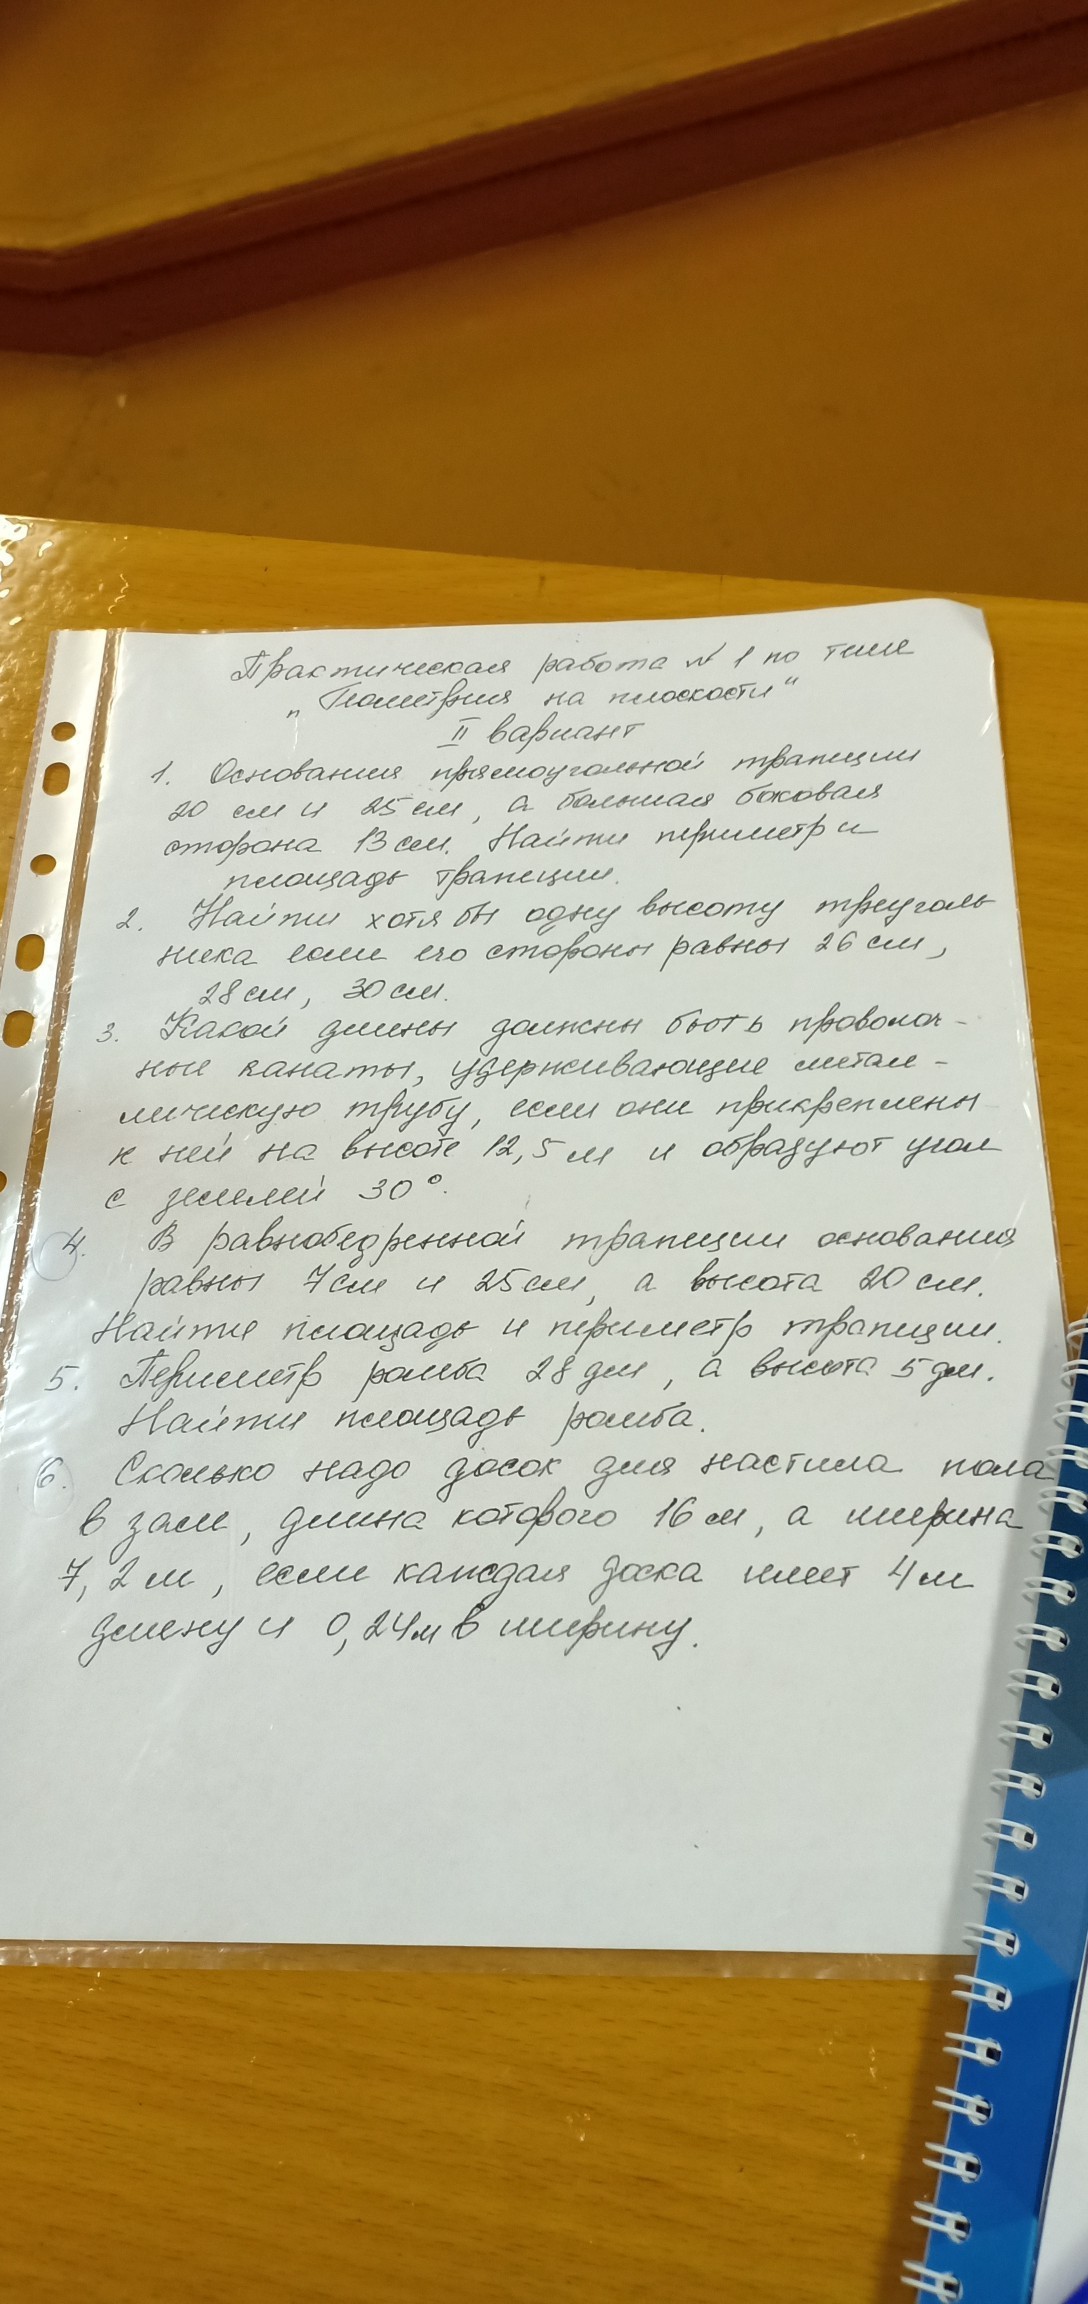 Практическая работа №1 по теме
„Геометрия на плоскости“
II вариант
1. Основания прямоугольной трапеции
20 см и 25 см, а большая боковая
сторона 13 см. Найти периметр и
площадь трапеции.
2. Найти хотя бы одну высоту треуголь
ника если его стороны равны 26 см,
28 см, 30 см.
3. Какой длины должны быть проволоч-
ные канаты, удерживающие метал-
лическую трубу, если они прикреплены
к ней на высоте 12,5 м и образуют угол
с землей 30°.
4. В равнобедренной трапеции основания
равны 7 см и 25 см, а высота 20 см.
Найти площадь и периметр трапеции.
5. Периметр ромба 28 дм, а высота 5 дм.
Найти площадь ромба.
6. Сколько надо досок для настила пола
в зале, длина которого 16 м, а ширина
7,2 м, если каждая доска имеет 4 м
длину и 0,24 м в ширину.